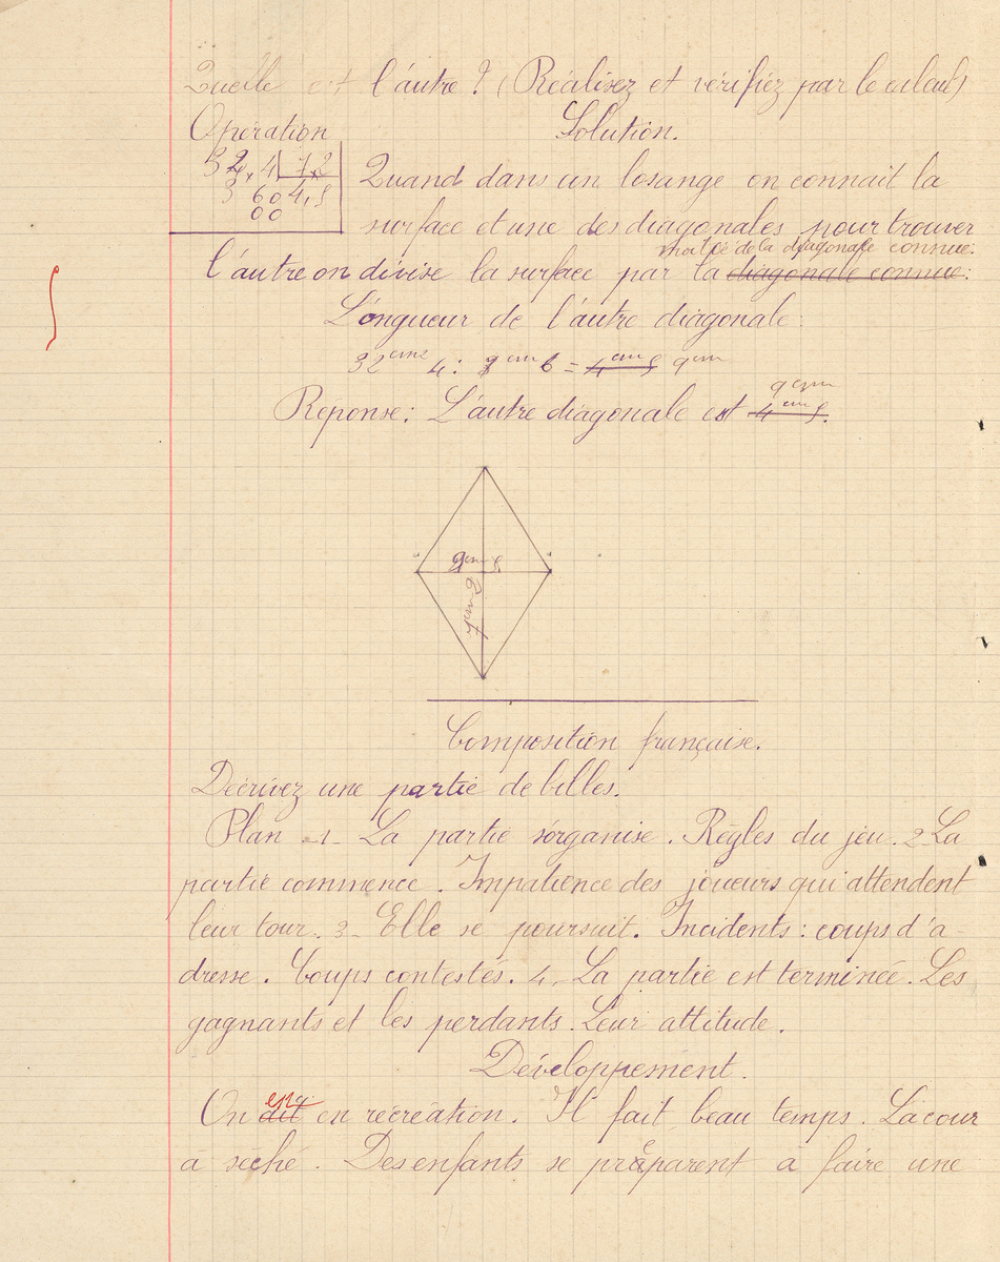 Quelle est l'autre ? (Réalisez et vérifiez par le calcul)
Opération Solution.
32,4 7,2
3 60 4,5
00
Quand dans un losange on connait la
surface et une des diagonales pour trouver
moitié de la diagonale connue.
l'autre on divise la surface par la diagonale connue:
Longueur de l'autre diagonale:
32 cm2 4 : 3 cm 6 = 4 cm 5 9 cm
9 cm
Réponse: L'autre diagonale est 4 cm 5.
Composition française.
Décrivez une partie de billes.
Plan -1- La partie s'organise. Règles du jeu. 2- La
partie commence. Impatience des joueurs qui attendent
leur tour. 3- Elle se poursuit. Incidents : coups d'a-
dresse. Coups contestés. 4- La partie est terminée. Les
gagnants et les perdants. Leur attitude.
Développement.
On en récréation. Il fait beau temps. La cour
a séché. Des enfants se préparent à faire une